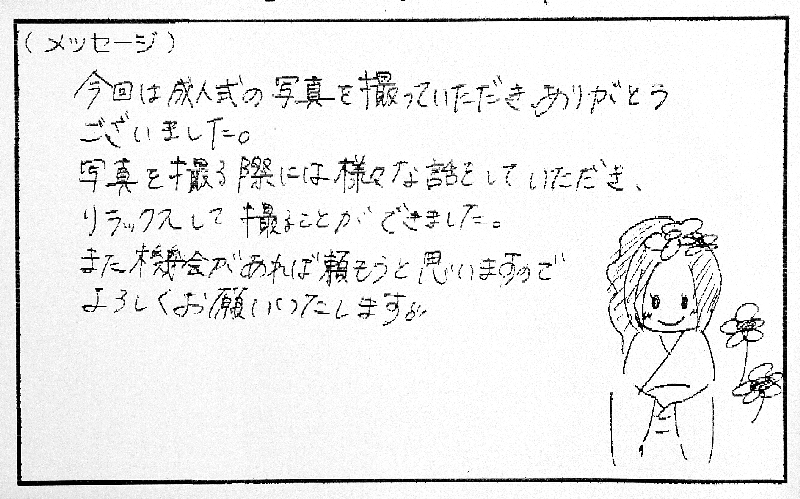 (メッセージ)
今回は成人式の写真を撮っていただきありがとう
ございました。
写真を撮る際には様々な話をしていただき、
リラックスして撮ることができました。
また機会があれば頼もうと思いますので
よろしくお願いいたします。